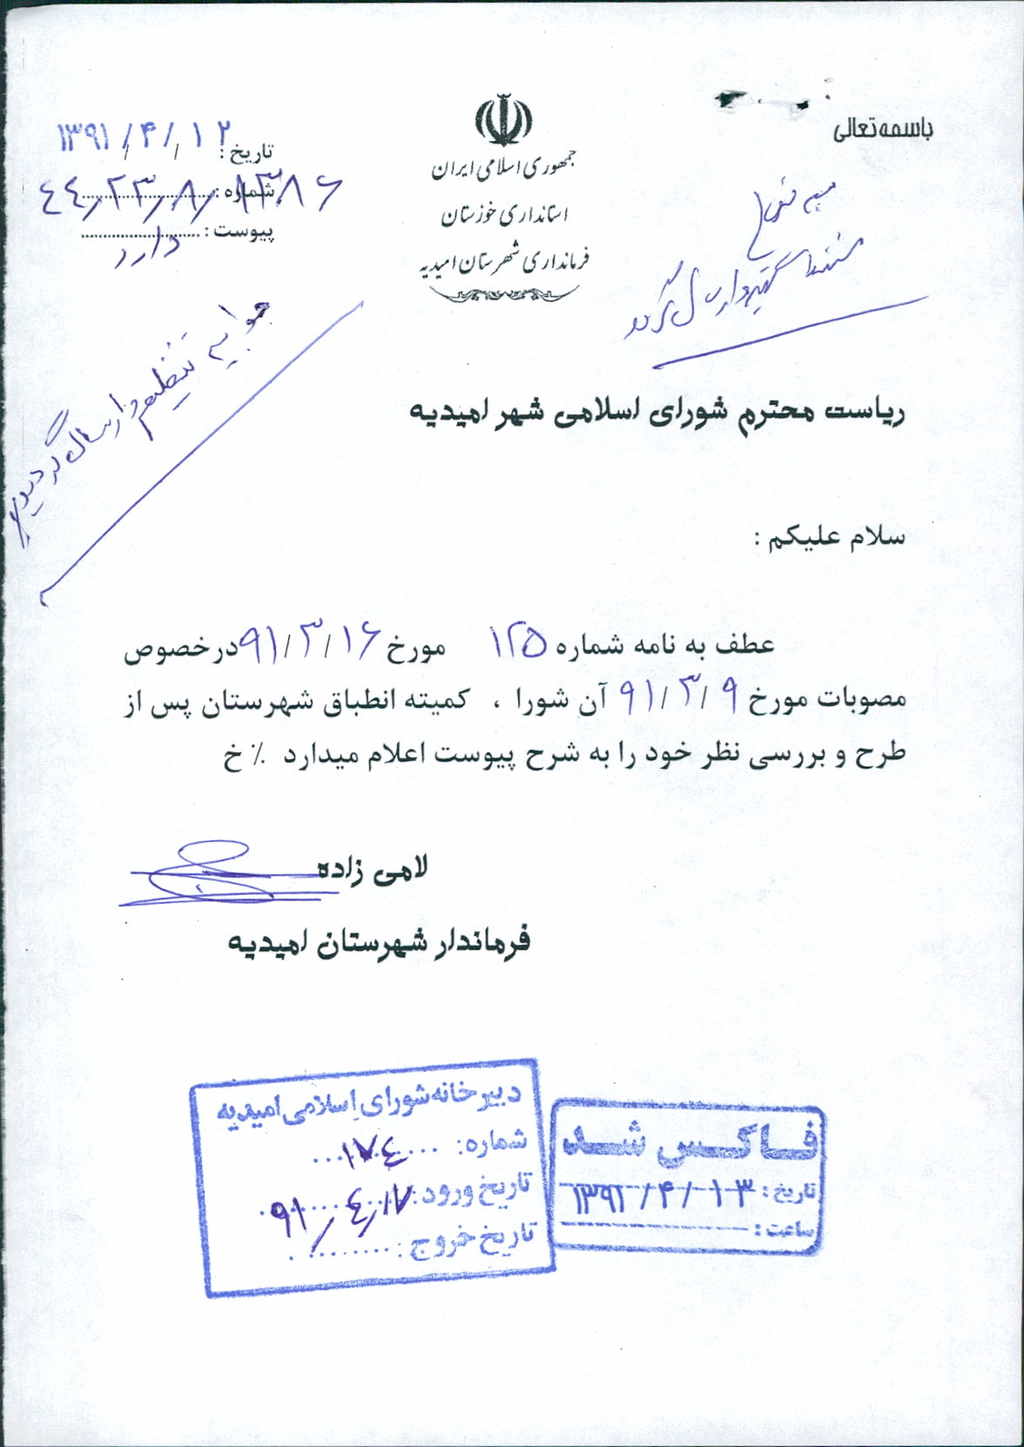 باسمه تعالی
جمهوری اسلامی ایران
استانداری خوزستان
فرمانداری شهرستان امیدیه
تاریخ : ۱۳۹۱/۴/۱۲
شماره : ۴۴/۲۳/۸/۱۳۸۶
پیوست : دارد
جوابیه تنظیم و ارسال گردید
ریاست محترم شورای اسلامی شهر امیدیه
سلام علیکم :
عطف به نامه شماره ۱۲۵ مورخ ۹۱/۳/۱۶ درخصوص
مصوبات مورخ ۹۱/۳/۹ آن شورا ، کمیته انطباق شهرستان پس از
طرح و بررسی نظر خود را به شرح پیوست اعلام میدارد ٪ خ
لامی زاده
فرماندار شهرستان امیدیه
دبیرخانه شورای اسلامی امیدیه
شماره: ۱۷۴
تاریخ ورود: ۹۱/۴/۱۷
تاریخ خروج :
فاکس شد
تاریخ : ۱۳۹۱/۴/۱۳
ساعت :